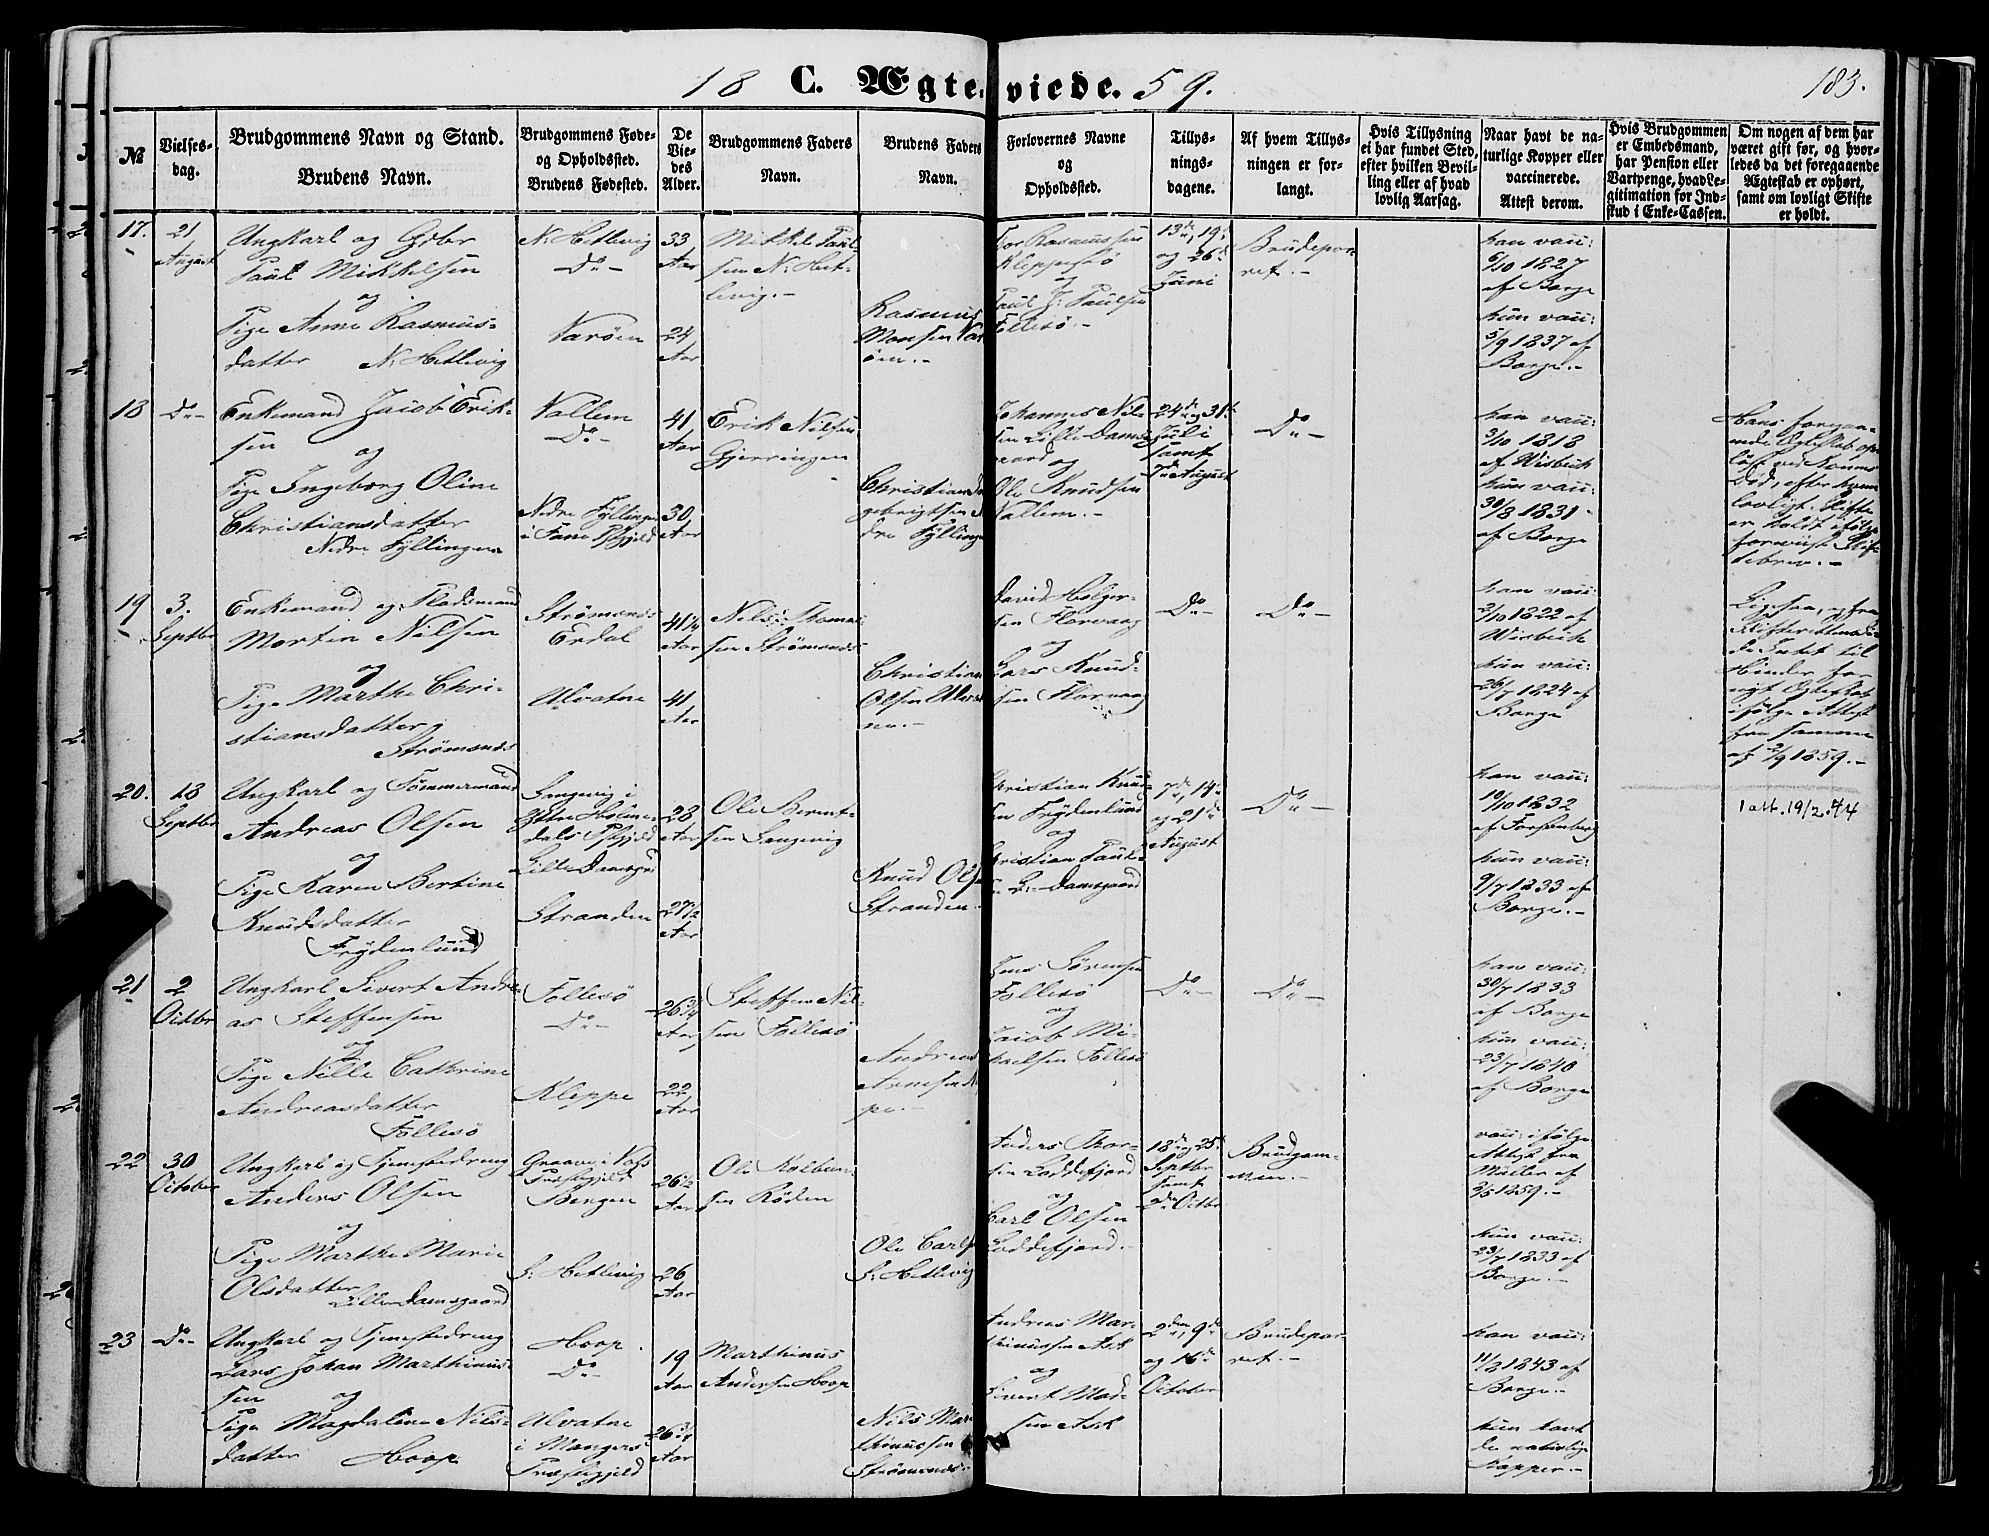 18 C. Ægteviede. 59.
183.
№
Vielsesdag.
Brudgommens Navn og Stand.
Brudens Navn.
Brudgommens Føde-
og Opholdssted.
Brudens Fødested.
De
Vie-
des
Alder.
Brudgommens Faders
Navn.
Brudens Faders
Navn.
Forlovernes Navne
og
Opholdssted.
Tillys-
nings-
dagene.
Af hvem Tillys-
ningen er for-
langt.
Hvis Tillysning
ei har fundet Sted,
efter hvilken Bevil-
ling eller af hvad
lovlig Aarsag.
Naar havt de na-
turlige Kopper eller
vaccinerede.
Attest derom.
Hvis Brudgommen
er Embedsmand,
har Pension eller
Vartpenge, hvad Le-
gitimation for Ind-
skud i Enke-Cassen.
Om nogen af dem har
været gift før, og hvor-
ledes da det foregaaende
Ægteskab er ophørt,
samt om lovligt Skifte
er holdt.
17.
21
August
Ungkarl og Gdbr
Paul Mikkelsen
og
Pige Anne Rasmus-
datter N: Hetlevig
N: Hetlevig
Do
Varøen
33
Aar
24
Aar
Mikkel Paul
sen N: Het-
levig.-
Rasmus
Monsen Var
øen.-
Tor Rasmussen
Kleppestø
og
Paul J: Paulsen
Follesø.-
13de, 19de
og 26de
Juni
Brudepar-
ret.-
han vacc:
6/10 1827
af Borge
hun vacc:
5/9 1837 af
Borge.-
18
Do
Enkemand Jacob Erik-
sen
og
Pige Ingeborg Oline
Christiansdatter
Nedre Fyllingen
Vallem
Do
Nedre Fyllingen
i Fane Pstgjeld
41
Aar
30
Aar
Erik Nilsen
Gjerringen
Johannes Nil-
sen Lille Dams
gaard og
Ole Knudsen
Vallem.-
24de og 31te
Juli
samt
7de August
Do
han vacc:
3/10 1818
af Wisbech
hun vacc:
30/8 1831
af Borge
19
3.
Septbr
Enkemand og Pladsmand
Morten Nilsen
og
Pige Marthe Chri-
stiansdatter
Strømsnes
Strømsnes
Erdal
Ulvatne
41 1/4
Aar
41
Aar
Nils Thomas-
sen Strømsnes
Christian
Olsen Ulvat
ne.-
David Holger-
sen Florvaag
og
Lars Knud-
sen Florvaag
Do
Do
han vacc:
2/10 1822 af
Wisbech
hun vacc:
26/7 1824 af
Borge
20.
18
Septbr
Ungkarl og Tømmermand
Andreas Olsen
og
Pige Karen Bertine
Knudsdatter
Frydenlund
Lille Damsgrd
Stranden
28
Aar
27 1/2
Aar
Ole Bernt-
sen Sangevig
Knud Olse
Stranden.
Christian Knud
sen Frydenlund
og
Christian Paul-
sen L: Damsgaard
7de, 14de
og 21de
August
Do
han vacc:
10/10 1832
hun vacc:
9/7 1833 af
Borge.-
1 att. 19/2.44
21
2
Octbr
Ungkarl Sivert Andre-
as Steffensen
og
Pige Nille Cathrine
Andreasdatter
Follesø
Follesø
Do
Kleppe
26 1/4
Aar
22
Aar
Steffen Nil-
sen Follesø
Andreas
Arnesen
pe.-
Jens Sørensen
Follesø
og
Jacob Mi-
kaelsen Follesø
Do
Do
han vacc:
30/7 1833
af Borge
hun vacc:
23/7 1840
af Borge
22
30
October
Ungkarl og Tjenestedreng
Anders Olsen
og
Pige Marthe Marie
Olsdatter
Lille Damsgaard
Præstegjeld
Bergen
S: Hetlevig
26 1/2
Aar
26
Aar
Ole Kolben-
sen Røden
Ole Carlse
S: Hetlevig
Anders Thor-
sen Loddefjord
og
Carl Olsen
Loddefjord.-
18de og 25de
Septbr
samt
2den Octbr
Brudgom-
men.-
vacc: ifølge
Attest fra
Møller af
2/5 1859.-
hun vacc:
23/7 1833 af
Borge.-
23
Do
Ungkarl og Tjenestedreng
Lars Johan Marthinus-
sen
og
Pige Magdalene Nils-
datter Hoop
Hoop
Do
Ulvatne
i Mangers
Præstegjeld
19
Aar
26 3/4
Aar
Marthinus
Andersen Hoop
Nils Mar
thinussen
Strømsnes.-
Andreas Mar-
thinussen Ask
og
Sivert Mad-
sen Ask
2den, 9de
og 16de
October
Brudepar-
ret.-
han vacc:
11/8 1843 af
Borge.-
hun havt
de naturlige
Kopper.-